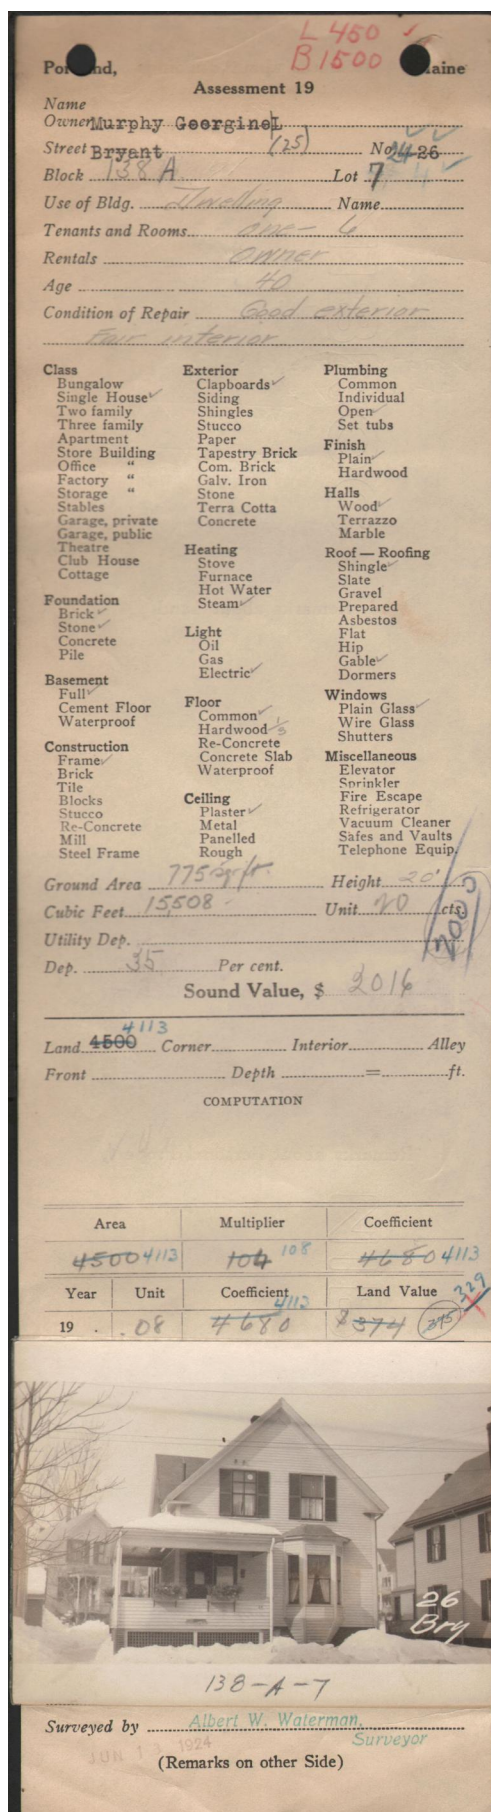 L 450
B 1500
Portland, Maine
Assessment 19
Name
Owner Murphy Georgine L
Street Bryant (25) No. 24-26
Block 138 A Lot 7
Use of Bldg. Dwelling Name
Tenants and Rooms one - 6
Rentals owner
Age 40
Condition of Repair Good exterior
Fair interior
Class
Bungalow
Single House ✓
Two family
Three family
Apartment
Store Building
Office "
Factory "
Storage "
Stables
Garage, private
Garage, public
Theatre
Club House
Cottage
Foundation
Brick ✓
Stone ✓
Concrete
Pile
Basement
Full ✓
Cement Floor
Waterproof
Construction
Frame ✓
Brick
Tile
Blocks
Stucco
Re-Concrete
Mill
Steel Frame
Exterior
Clapboards ✓
Siding
Shingles
Stucco
Paper
Tapestry Brick
Com. Brick
Galv. Iron
Stone
Terra Cotta
Concrete
Heating
Stove
Furnace
Hot Water
Steam ✓
Light
Oil
Gas
Electric ✓
Floor
Common ✓
Hardwood 1/3
Re-Concrete
Concrete Slab
Waterproof
Ceiling
Plaster ✓
Metal
Panelled
Rough
Plumbing
Common
Individual
Open ✓
Set tubs
Finish
Plain ✓
Hardwood
Halls
Wood ✓
Terrazzo
Marble
Roof — Roofing
Shingle ✓
Slate
Gravel
Prepared
Asbestos
Flat
Hip
Gable ✓
Dormers
Windows
Plain Glass ✓
Wire Glass
Shutters
Miscellaneous
Elevator
Sprinkler
Fire Escape
Refrigerator
Vacuum Cleaner
Safes and Vaults
Telephone Equip.
Ground Area 775 sq. ft. Height 20'
Cubic Feet 15,508 - Unit 20 cts.
2000
Utility Dep.
Dep. 35 Per cent.
Sound Value, $ 2016
4113
Land 4500 Corner Interior Alley
Front Depth = ft.
COMPUTATION
Area Multiplier Coefficient
4500 4113 104 108 4680 4113
Year Unit Coefficient Land Value
4113 329
19 . .08 4680 $374 375
26
Bry
138-A-7
Surveyed by Albert W. Waterman,
Surveyor
JUN 13 1924
(Remarks on other Side)